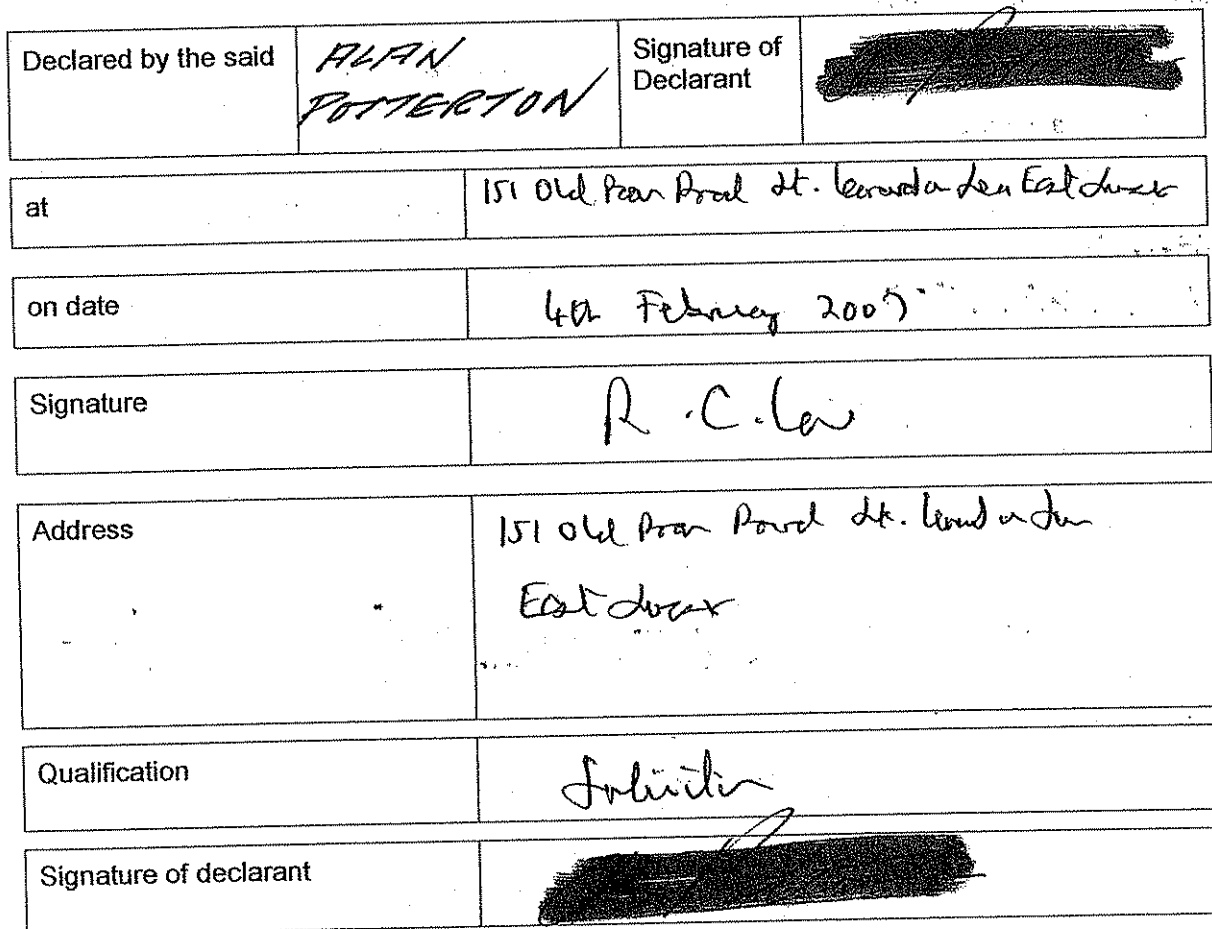 Declared by the said
ALAN
POTTERTON
Signature of
Declarant
at
151 Old Road St. East Sussex
on date
4th February 2007
Signature
R. C.
Address
151 Old Road St.
East Sussex
Qualification
Solicitor
Signature of declarant